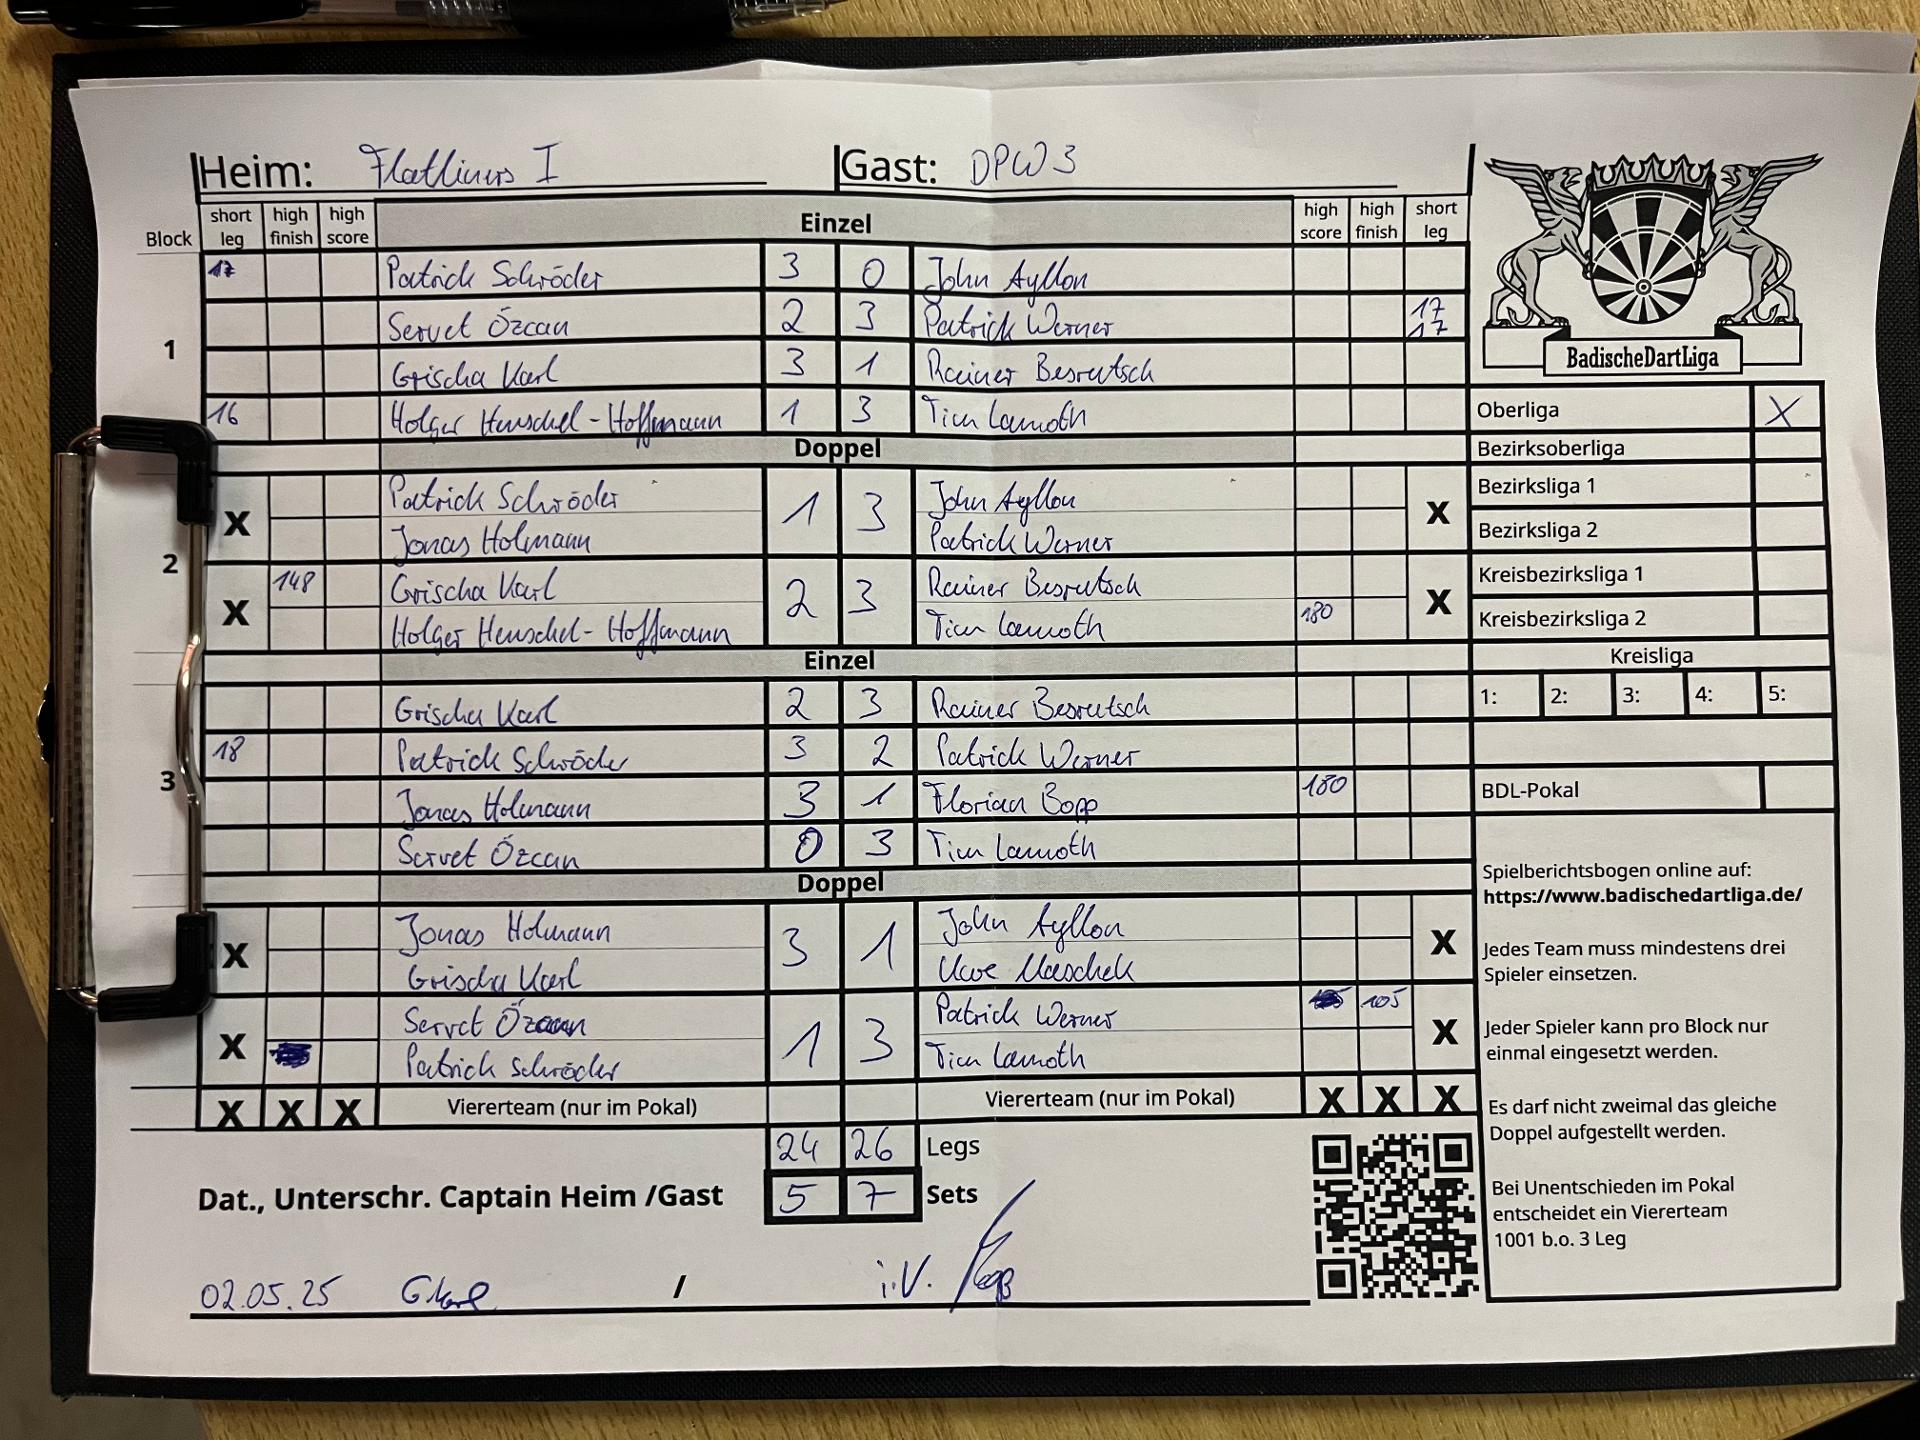 Heim: Flatliners I Gast: DPW 3
Block short leg high finish high score Einzel high score high finish short leg
1
17 Patrick Schröder 3 0 John Ayllon
Servet Özcan 2 3 Patrick Werner 17 17
Grischa Karl 3 1 Rainer Besrutsch
16 Holger Henschel-Hoffmann 1 3 Tim Lamoth
Doppel
2
X Patrick Schröder 1 3 John Ayllon X
Jonas Holmann Patrick Werner
X 148 Grischa Karl 2 3 Rainer Besrutsch X
Holger Henschel-Hoffmann Tim Lamoth 180
Einzel
3
Grischa Karl 2 3 Rainer Besrutsch
18 Patrick Schröder 3 2 Patrick Werner
Jonas Holmann 3 1 Florian Bopp 180
Servet Özcan 0 3 Tim Lamoth
Doppel
X Jonas Holmann 3 1 John Ayllon X
Grischa Karl Uwe Maschek
X Servet Özcan 1 3 Patrick Werner 105 X
Patrick Schröder Tim Lamoth
X X X Viererteam (nur im Pokal) Viererteam (nur im Pokal) X X X
24 26 Legs
Dat., Unterschr. Captain Heim /Gast 5 7 Sets
02.05.25 G. Karl / i.V.
BadischeDartLiga
Oberliga X
Bezirksoberliga
Bezirksliga 1
Bezirksliga 2
Kreisbezirksliga 1
Kreisbezirksliga 2
Kreisliga
1: 2: 3: 4: 5:
BDL-Pokal
Spielberichtsbogen online auf:
https://www.badischedartliga.de/
Jedes Team muss mindestens drei
Spieler einsetzen.
Jeder Spieler kann pro Block nur
einmal eingesetzt werden.
Es darf nicht zweimal das gleiche
Doppel aufgestellt werden.
Bei Unentschieden im Pokal
entscheidet ein Viererteam
1001 b.o. 3 Leg